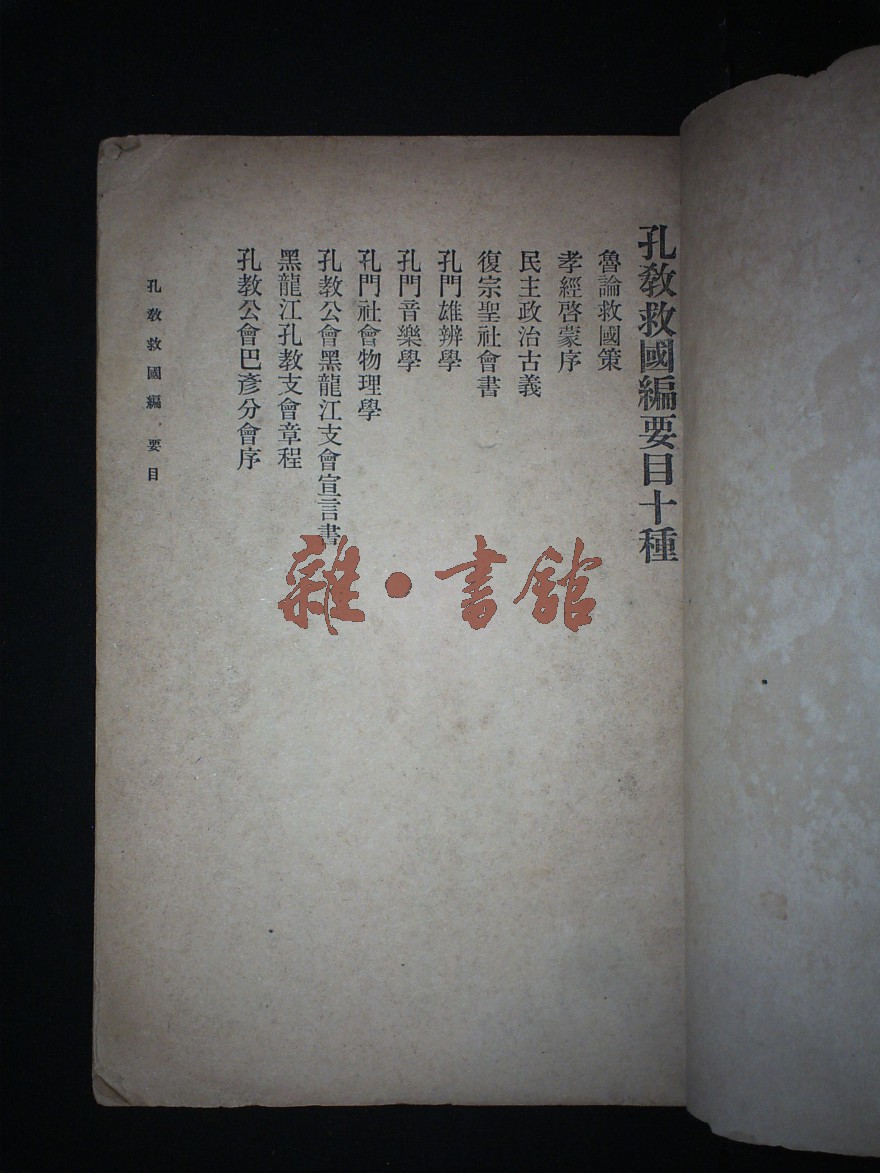 孔教救國編要目十種
魯論救國策
孝經啓蒙序
民主政治古義
復宗聖社會書
孔門雄辨學
孔門音樂學
孔門社會物理學
孔教公會黑龍江支會宣言書
黑龍江孔教支會章程
孔教公會巴彥分會序
孔教救國編 要目
雜·書館